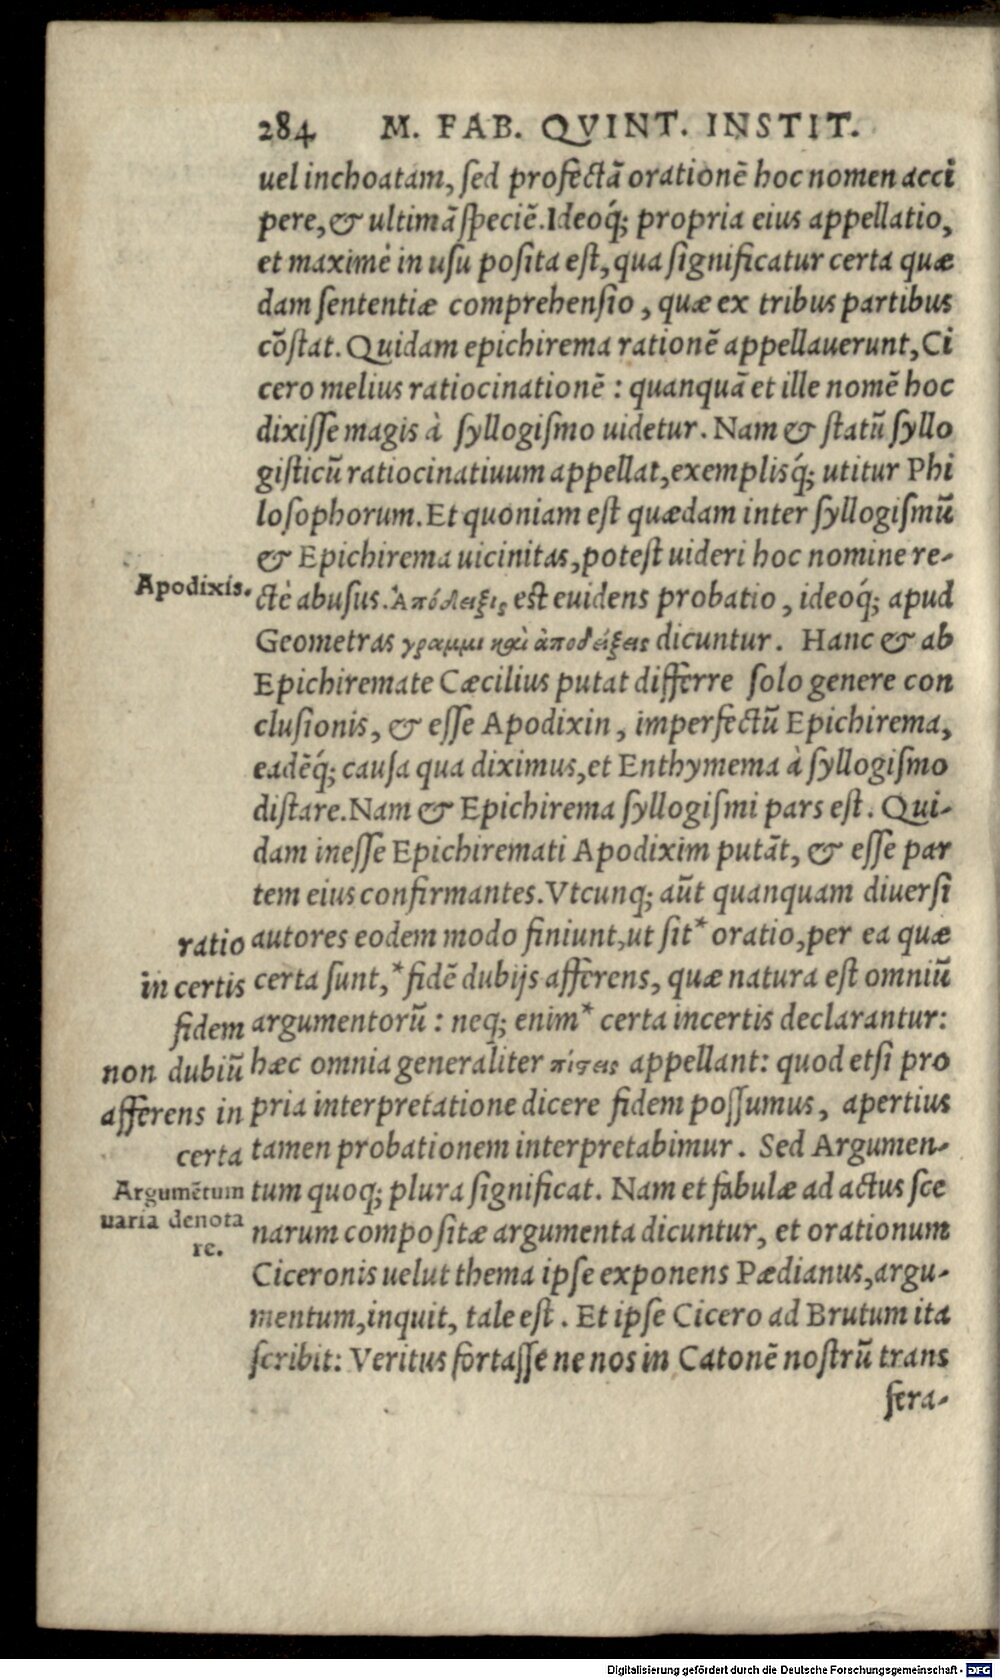 284 M. FAB. QVINT. INSTIT.
uel inchoatam, sed profectā orationē hoc nomen acci
pere, & ultimā speciē. Ideoq́; propria eius appellatio,
et maximè in usu posita est, qua significatur certa quæ
dam sententiæ comprehensio, quæ ex tribus partibus
cōstat. Quidam epichirema rationē appellauerunt, Ci
cero melius ratiocinationē : quanquā et ille nomē hoc
dixisse magis à syllogismo uidetur. Nam & statū syllo
gisticū ratiocinatiuum appellat, exemplisq́; utitur Phi
losophorum. Et quoniam est quædam inter syllogismū
& Epichirema uicinitas, potest uideri hoc nomine re-
Apodixis.
ctè abusus. Ἀπόδειξις est euidens probatio, ideoq́; apud
Geometras γραμμι καὶ ἀποδείξεις dicuntur. Hanc & ab
Epichiremate Cæcilius putat differre solo genere con
clusionis, & esse Apodixin, imperfectū Epichirema,
eadēq́; causa qua diximus, et Enthymema à syllogismo
distare. Nam & Epichirema syllogismi pars est. Qui-
dam inesse Epichiremati Apodixim putāt, & esse par
tem eius confirmantes. Vtcunq; aūt quanquam diuersi
autores eodem modo finiunt, ut sit* oratio, per ea quæ
certa sunt,* fidē dubijs afferens, quæ natura est omniū
argumentorū : neq; enim* certa incertis declarantur:
hæc omnia generaliter πίςεις appellant: quod etsi pro
pria interpretatione dicere fidem possumus, apertius
tamen probationem interpretabimur. Sed Argumen-
ratio
in certis
fidem
non dubiū
afferens in
certa
Argumētum
uaria denota
re.
tum quoq; plura significat. Nam et fabulæ ad actus sce
narum compositæ argumenta dicuntur, et orationum
Ciceronis uelut thema ipse exponens Pædianus, argu-
mentum, inquit, tale est. Et ipse Cicero ad Brutum ita
scribit: Veritus fortasse ne nos in Catonē nostrū trans
fera-
Digitalisierung gefördert durch die Deutsche Forschungsgemeinschaft - DFG